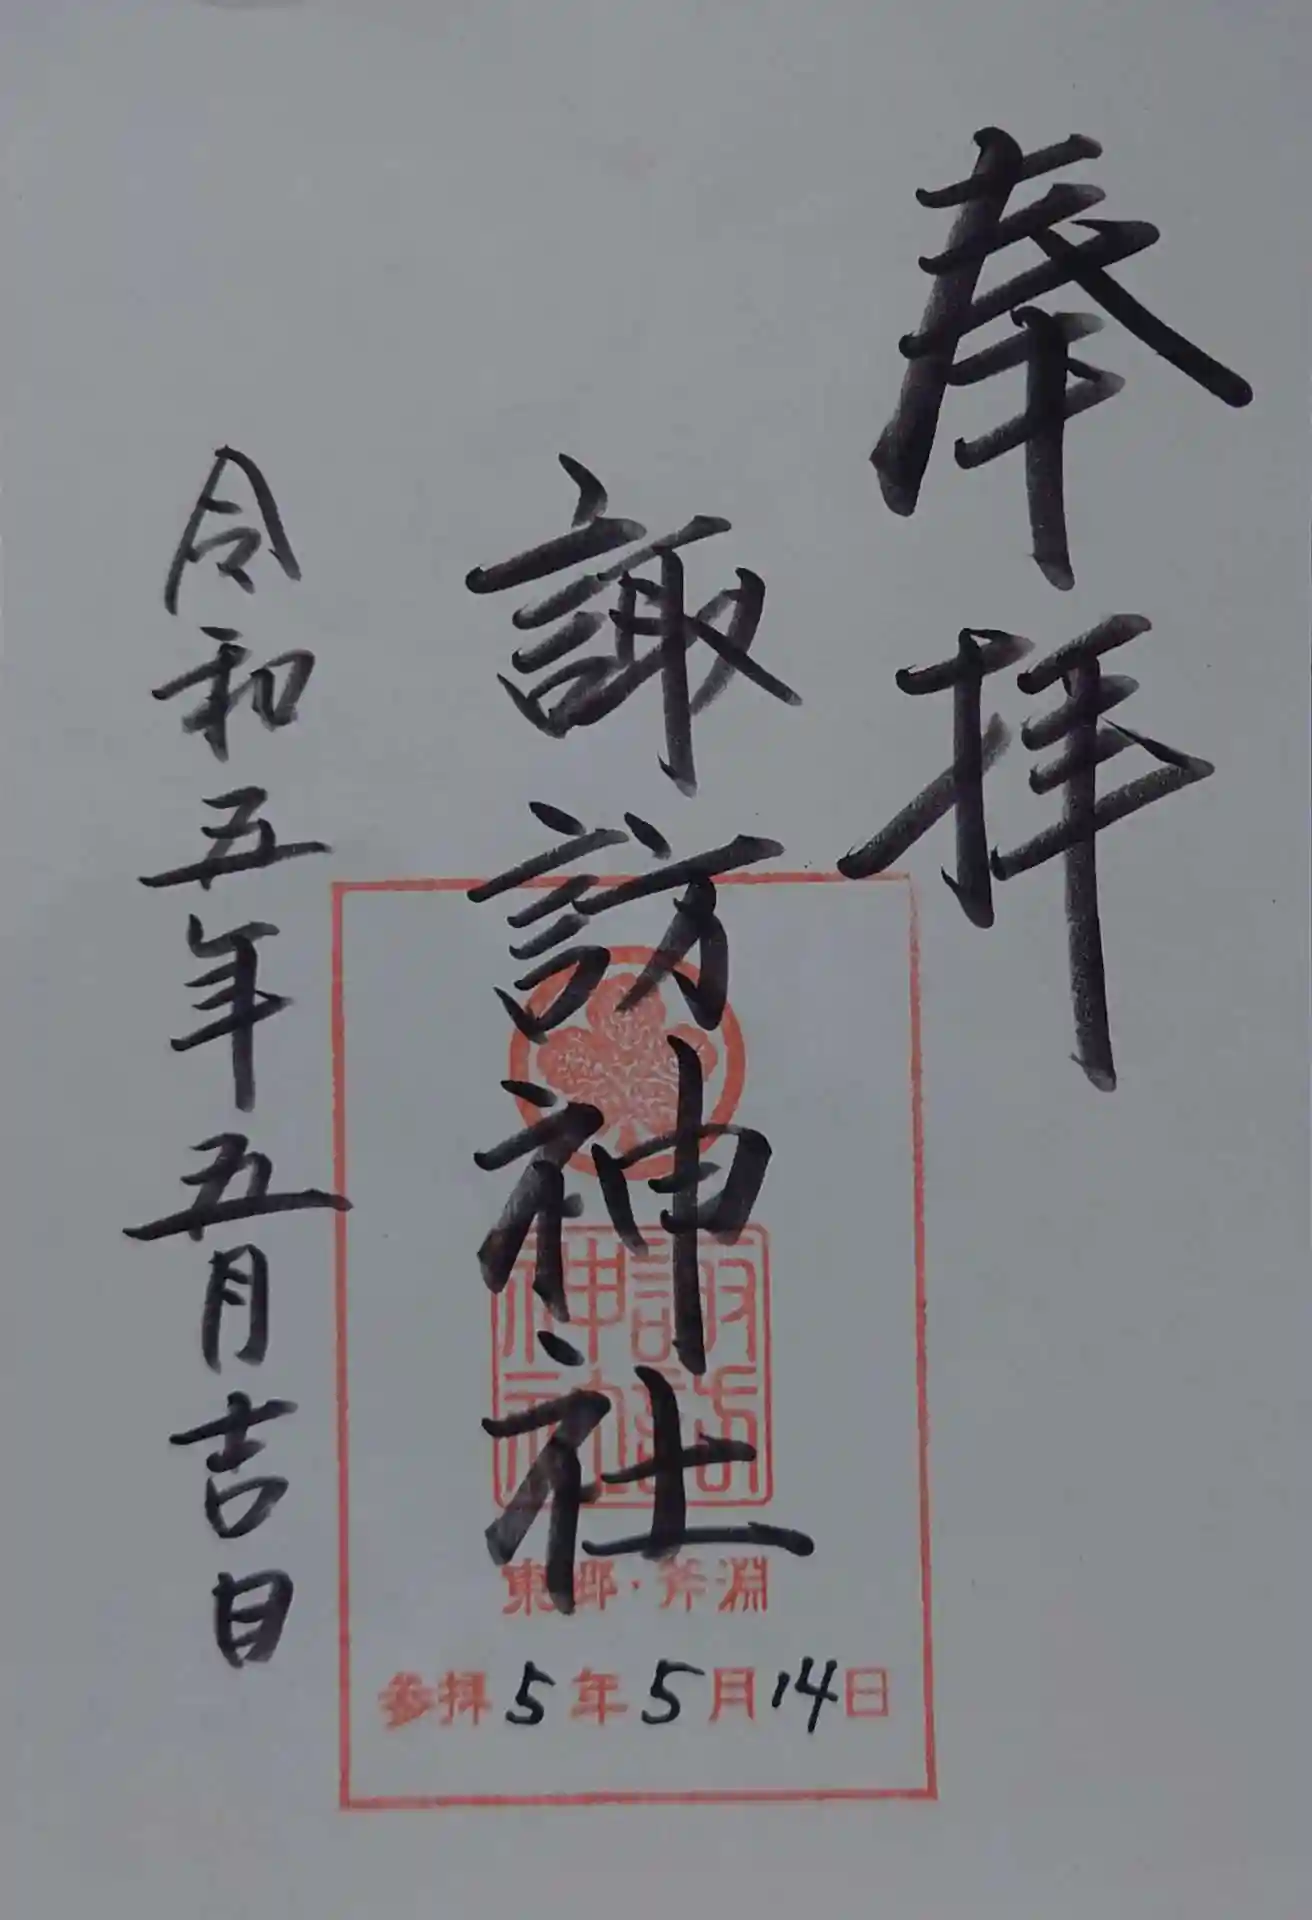 奉拝
諏訪神社
令和五年五月吉日
諏訪
神社
東郷・斧淵
参拝5年5月14日